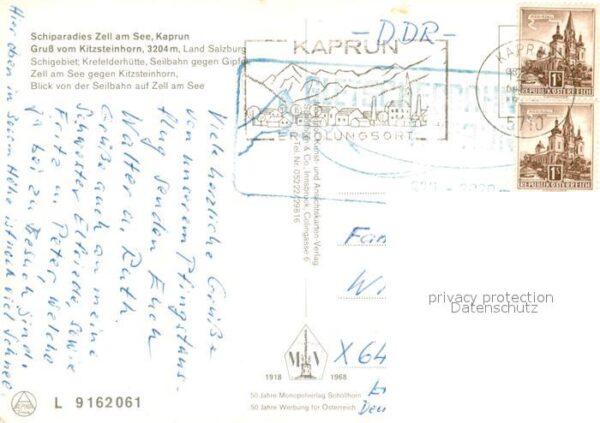 Schiparadies Zell am See, Kaprun
Gruß vom Kitzsteinhorn, 3204 m, Land Salzburg
Schigebiet; Krefelderhütte, Seilbahn gegen Gipfel
Zell am See gegen Kitzsteinhorn,
Blick von der Seilbahn auf Zell am See
- DDR -
KAPRUN
ERHOLUNGSORT
KAPRUN
5710
1S
REPUBLIK ÖSTERREICH
1S
REPUBLIK ÖSTERREICH
Viele herzliche Grüße
von unserem Pfingstaus-
flug senden Euch
Walter u. Ruth.
Grüße auch an meine
Schwester Elfriede, sowie
Fritz u. Peter, welche
ja bei zu Besuch sind.
Hier oben in 3000m Höhe ist noch viel Schnee.
Kunst- und Ansichtskarten-Verlag
& Co., Innsbruck, Colingasse 6
Nr. 05222/29816
Fam
W
X 64
privacy protection
Datenschutz
M V
1918 1968
50 Jahre Monopolverlag Schöllhorn
50 Jahre Werbung für Österreich
L 9162061